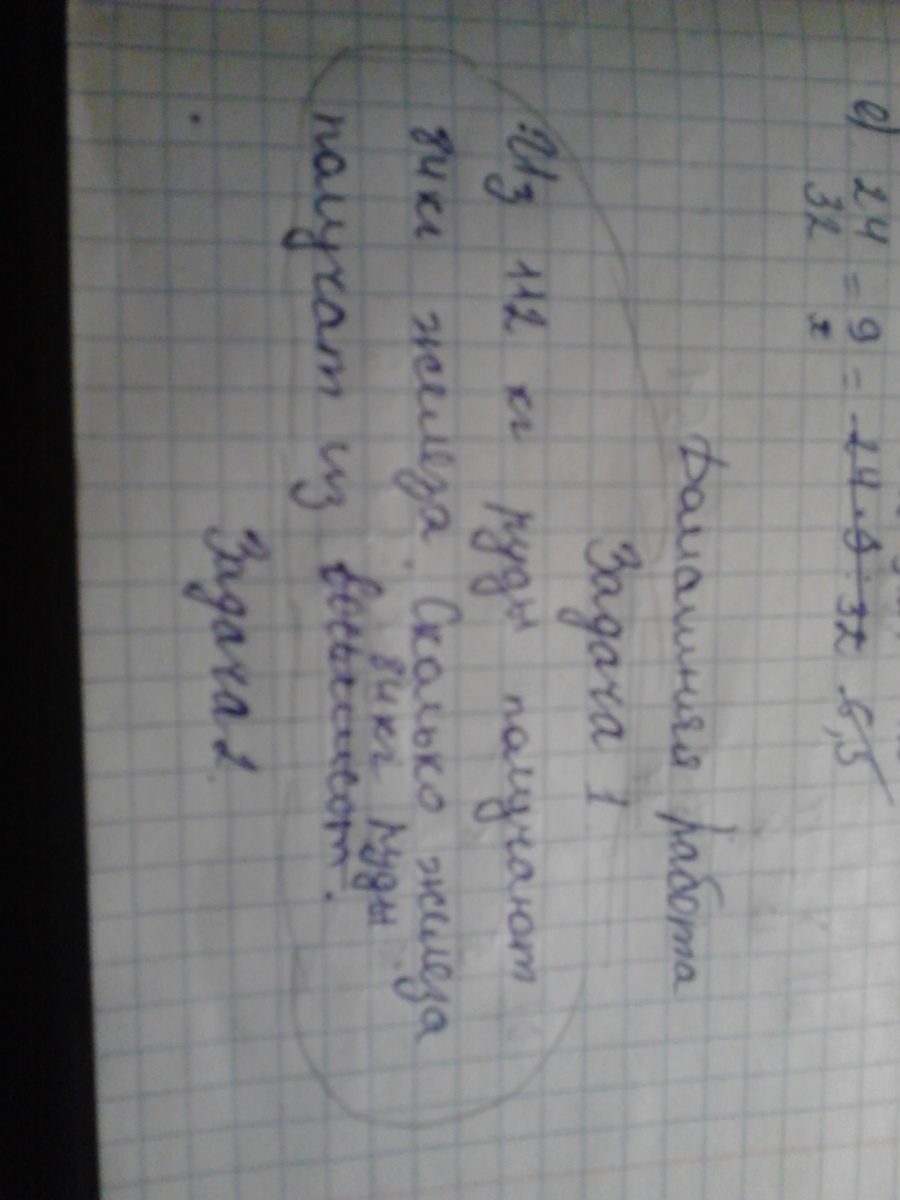 е) 24/32 = 9/x = 24·9:32 6,5
Домашняя работа
Задача 1
Из 112 кг руды получают
84 кг железа. Сколько железа
84 кг руды
получат из восьмисот.
Задача 2.